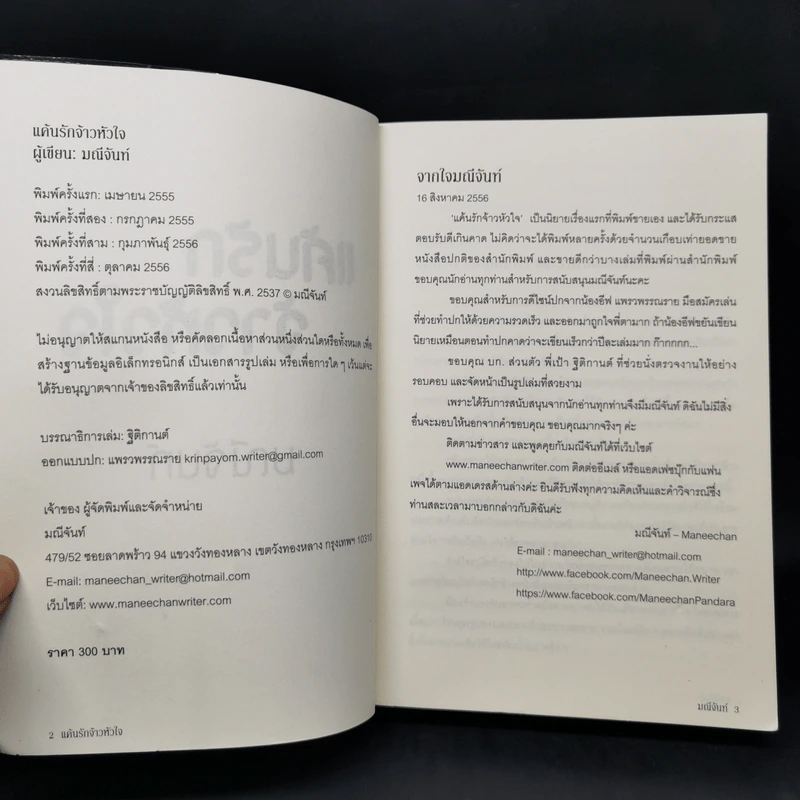 แค้นรักจ้าวหัวใจ
ผู้เขียน: มณีจันท์
พิมพ์ครั้งแรก: เมษายน 2555
พิมพ์ครั้งที่สอง : กรกฎาคม 2555
พิมพ์ครั้งที่สาม : กุมภาพันธุ์ 2556
พิมพ์ครั้งที่สี่ : ตุลาคม 2556
สงวนลิขสิทธิ์ตามพระราชบัญญัติลิขสิทธิ์ พ.ศ. 2537 © มณีจันท์
ไม่อนุญาตให้สแกนหนังสือ หรือคัดลอกเนื้อหาส่วนหนึ่งส่วนใดหรือทั้งหมด เพื่อ
สร้างฐานข้อมูลอิเล็กทรอนิกส์ เป็นเอกสารรูปเล่ม หรือเพื่อการใด ๆ เว้นแต่จะ
ได้รับอนุญาตจากเจ้าของลิขสิทธิ์แล้วเท่านั้น
บรรณาธิการเล่ม: ฐิติกานต์
ออกแบบปก: แพรวพรรณราย krinpayom.writer@gmail.com
เจ้าของ ผู้จัดพิมพ์และจัดจำหน่าย
มณีจันท์
479/52 ซอยลาดพร้าว 94 แขวงวังทองหลาง เขตวังทองหลาง กรุงเทพฯ 10310
E-mail: maneechan_writer@hotmail.com
เว็บไซต์: www.maneechanwriter.com
ราคา 300 บาท
2 แค้นรักจ้าวหัวใจ
จากใจมณีจันท์
16 สิงหาคม 2556
'แค้นรักจ้าวหัวใจ' เป็นนิยายเรื่องแรกที่พิมพ์ขายเอง และได้รับกระแส
ตอบรับดีเกินคาด ไม่คิดว่าจะได้พิมพ์หลายครั้งด้วยจำนวนเกือบเท่ายอดขาย
หนังสือปกติของสำนักพิมพ์ และขายดีกว่าบางเล่มที่พิมพ์ผ่านสำนักพิมพ์
ขอบคุณนักอ่านทุกท่านสำหรับการสนับสนุนมณีจันท์นะคะ
ขอบคุณสำหรับการดีไซน์ปกจากน้องอีฟ แพรวพรรณราย มือสมัครเล่น
ที่ช่วยทำปกให้ด้วยความรวดเร็ว และออกมาถูกใจพี่ตามาก ถ้าน้องอีฟขยันเขียน
นิยายเหมือนตอนทำปกคาดว่าจะเขียนเร็วกว่าปีละเล่มมาก ก๊ากกกก...
ขอบคุณ บก. ส่วนตัว พี่เป้า ฐิติกานต์ ที่ช่วยนั่งตรวจงานให้อย่าง
รอบคอบ และจัดหน้าเป็นรูปเล่มที่สวยงาม
เพราะได้รับการสนับสนุนจากนักอ่านทุกท่านจึงมีมณีจันท์ ดิฉันไม่มีสิ่ง
อื่นจะมอบให้นอกจากคำขอบคุณ ขอบคุณมากจริงๆ ค่ะ
ติดตามข่าวสาร และพูดคุยกับมณีจันท์ได้ที่เว็บไซต์
www.maneechanwriter.com ติดต่ออีเมล์ หรือแอดเฟซบุ๊กกับแฟน
เพจได้ตามแอดเดรสด้านล่างค่ะ ยินดีรับฟังทุกความคิดเห็นและคำวิจารณ์ซึ่ง
ท่านสละเวลามาบอกกล่าวกับดิฉันค่ะ
มณีจันท์ – Maneechan
E-mail : maneechan_writer@hotmail.com
http://www.facebook.com/Maneechan.Writer
https://www.facebook.com/ManeechanPandara
มณีจันท์ 3